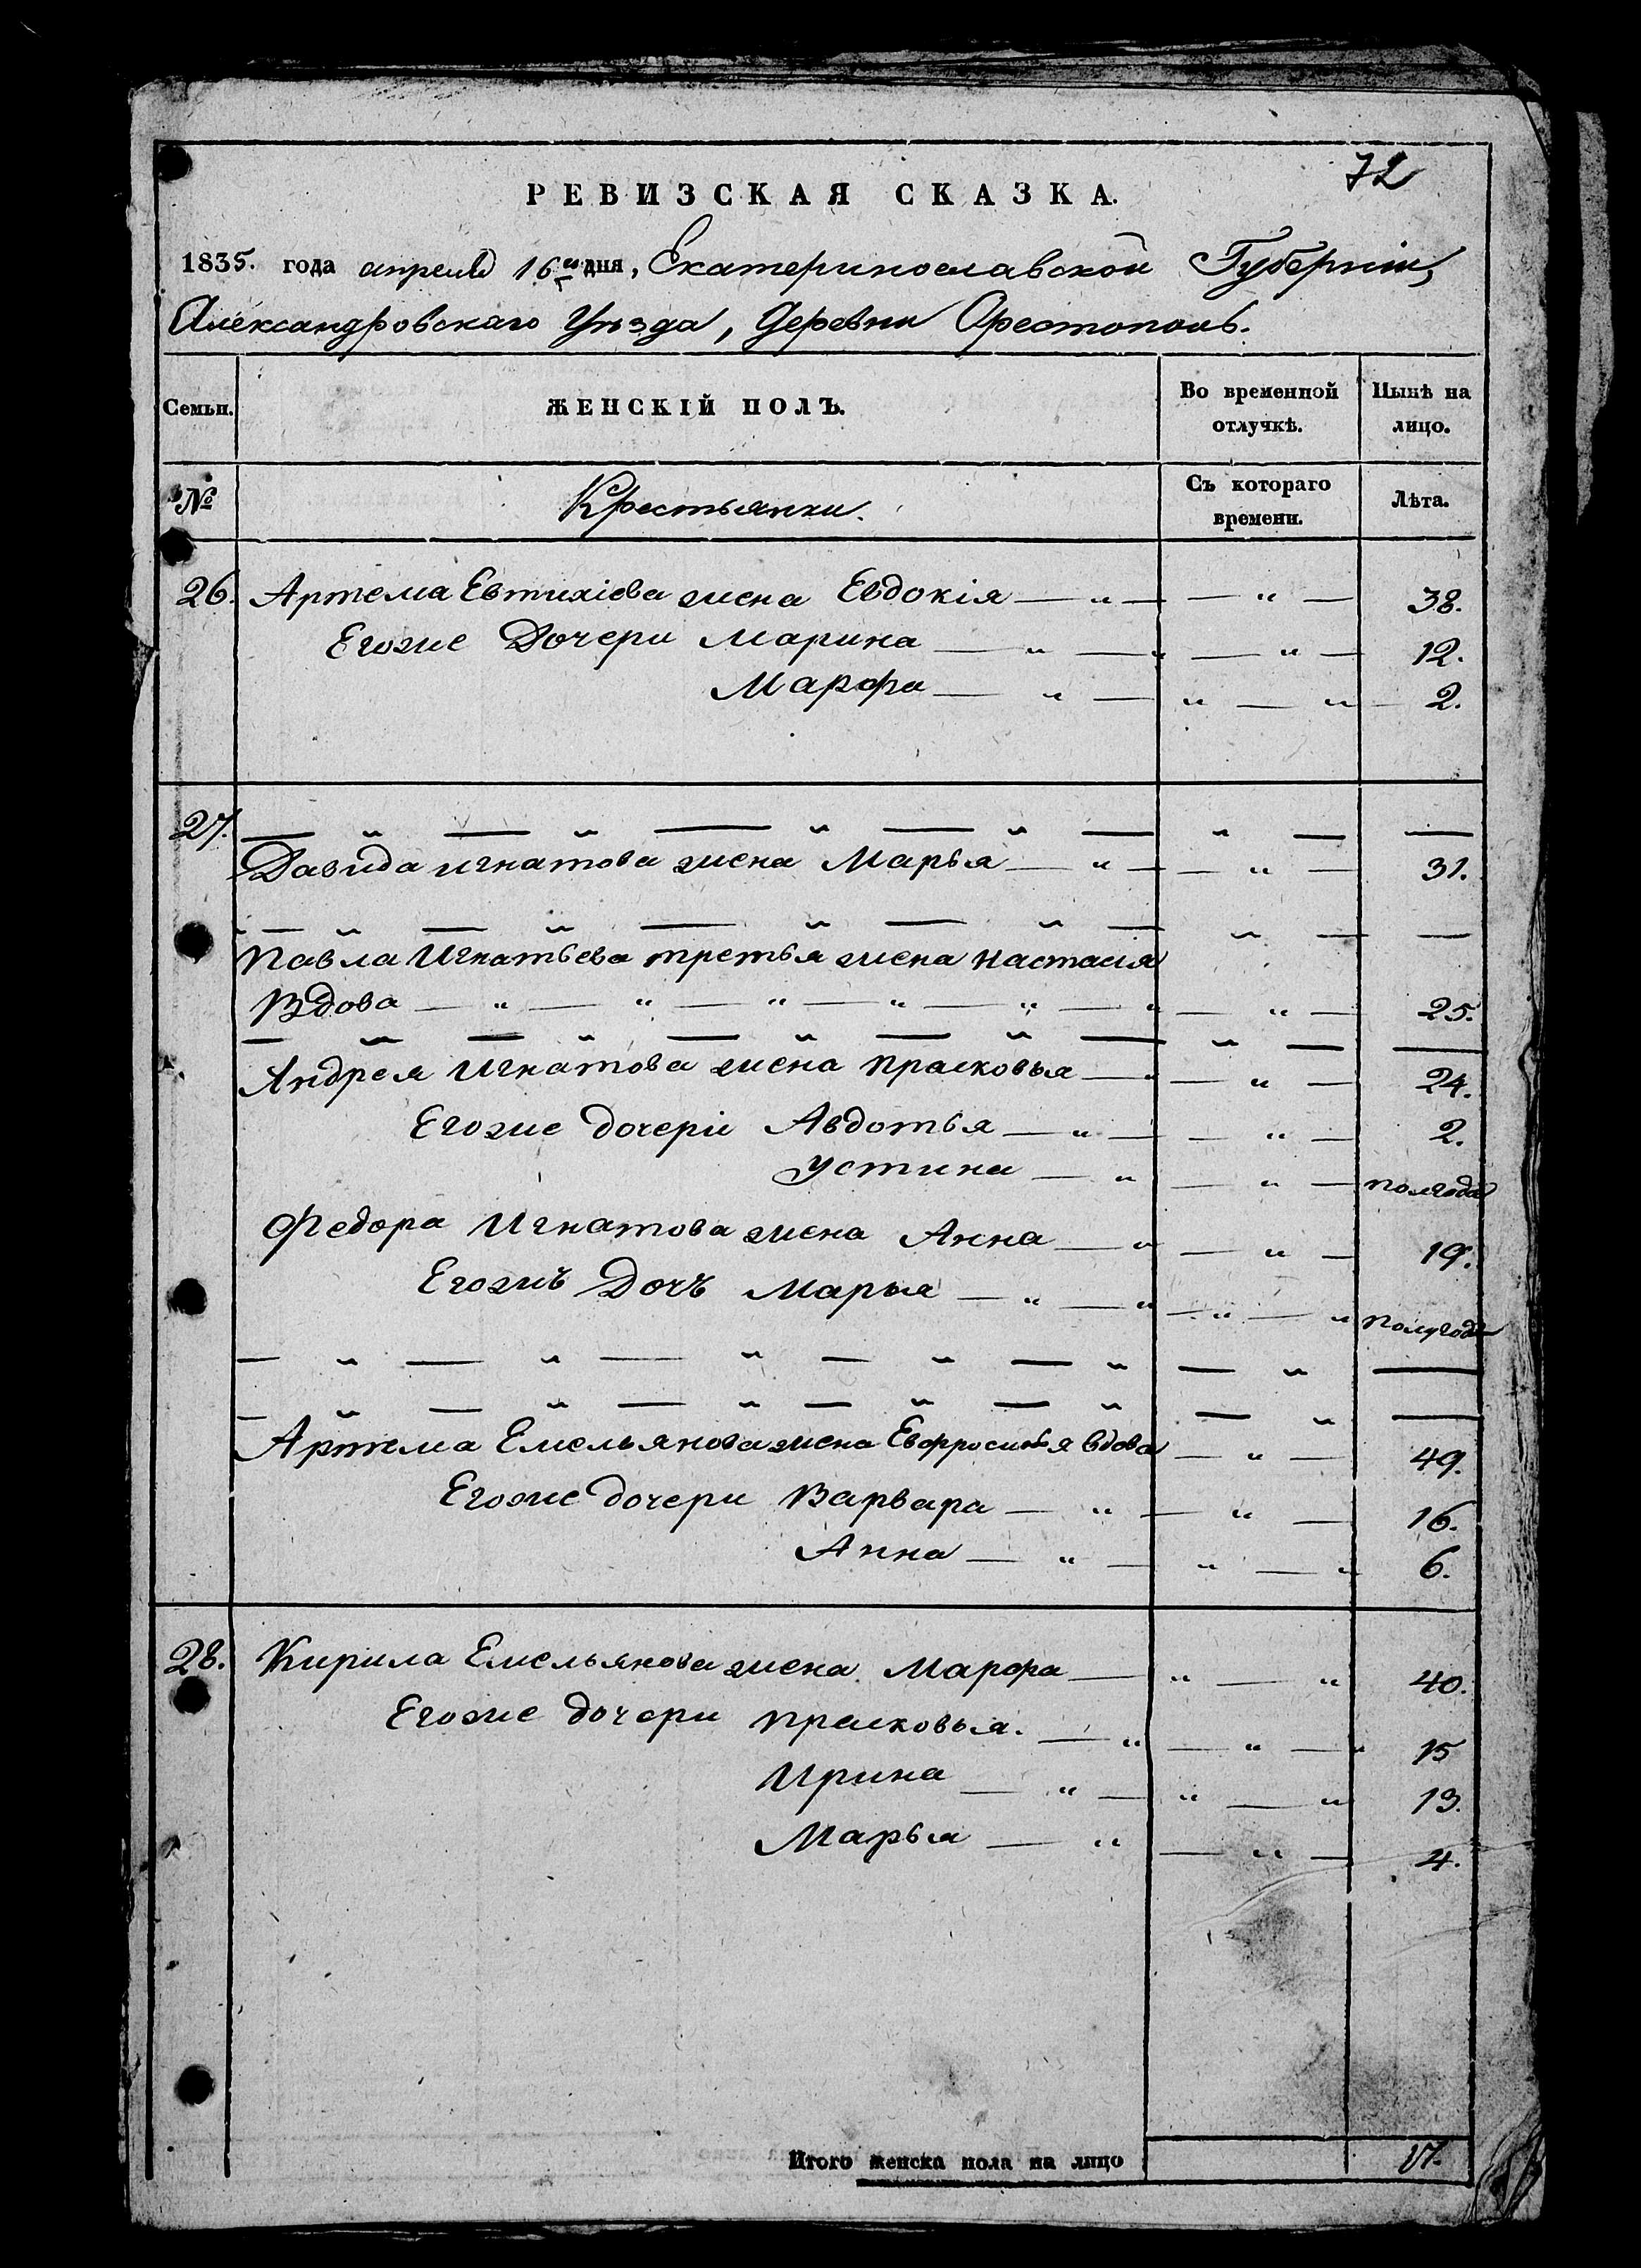 72
РЕВИЗСКАЯ СКАЗКА.
1835. года апреля 16го дня, Екатеринославской Губерніи,
Александровскаго Уѣзда, Деревни Орестополь.
Семьи. ЖЕНСКІЙ ПОЛЪ. Во временной отлучкѣ. Нынѣ на лицо.
№ Крестьянки. Съ котораго времени. Лѣта.
26. Артема Евтихіева жена Евдокія — „ — — „ — 38.
Егоже Дочери Марина — „ — „ — „ — 12.
Марфа — „ — „ — „ — 2.
27. — „ — „ — „ — „ — „ — —
Давида игнатова жена Марья — „ — — „ — 31.
— „ — „ — „ — „ — „ — —
Павла Игнатьева третья жена настасія
Вдова — „ — „ — „ — „ — „ — „ — „ — 25.
— „ — „ — „ — „ — „ — —
Андрея Игнатова жена прасковья — „ — „ — 24.
Егоже дочеріи Авдотья — „ — — „ — 2.
Устина — „ — „ — полгода
Федора Игнатова жена Анна — „ — „ — 19.
Егожъ Дочь Марья — „ — „ — „ — „ полугода
— „ — „ — „ — „ — „ — „ —
— „ — „ — „ — „ — „ — „ —
Артема Емельянова жена Евфросинья вдова — „ — 49.
Егоже дочери Варвара — „ — „ — 16.
Анна — „ — „ — „ 6.
28. Кирила Емельянова жена Марфа — „ — „ 40.
Егоже дочери прасковья. — „ — „ — „ 15
Ирина — „ — „ — „ 13.
Марья — „ — „ — 4.
Итого женска пола на лицо 17.